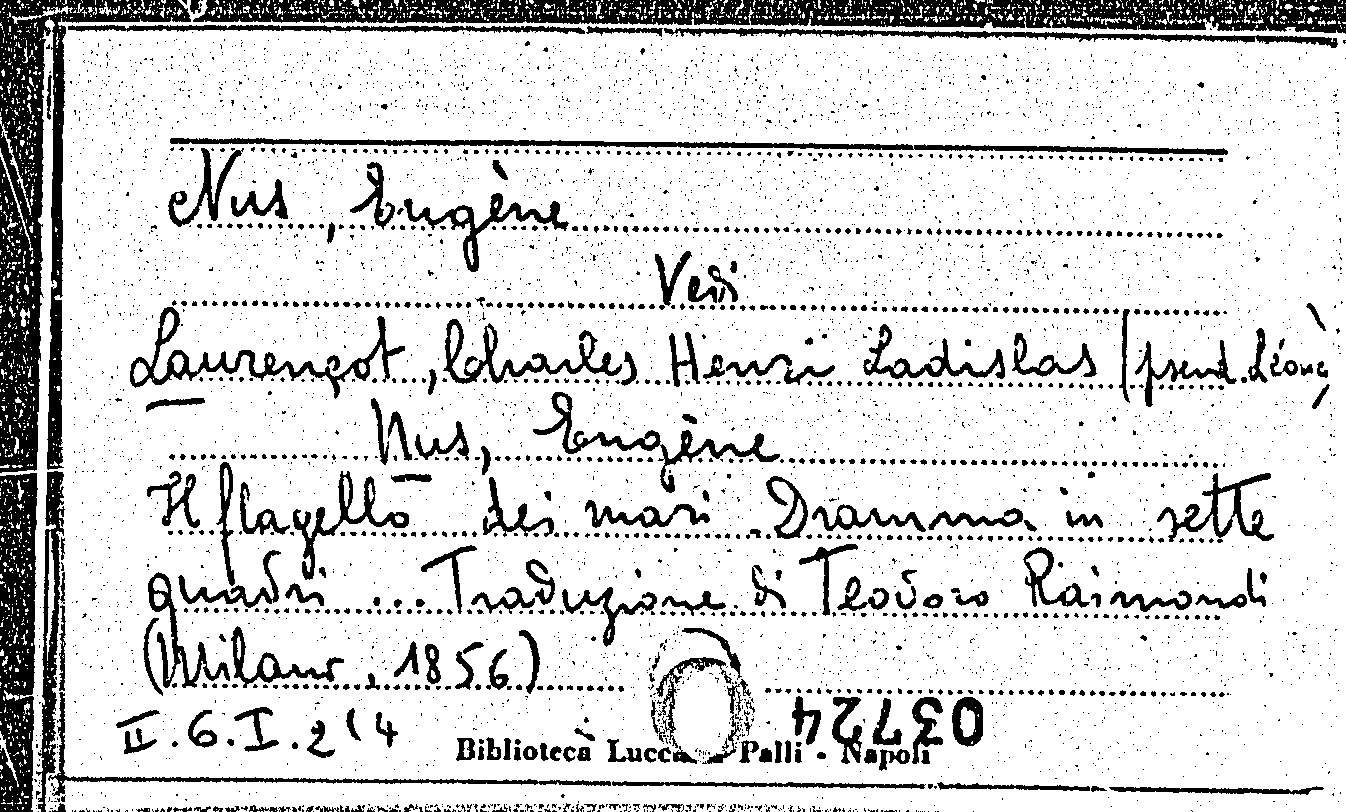 Nus, Eugène
Vedi
Laurençot, Charles Henri Ladislas (pseud. Léonce)
Nus, Eugène
Il flagello dei mari. Dramma in sette
quadri ... Traduzione di Teodoro Raimondi
(Milano, 1856)
II.6.I.2(4
03724
Biblioteca Lucchesi Palli - Napoli